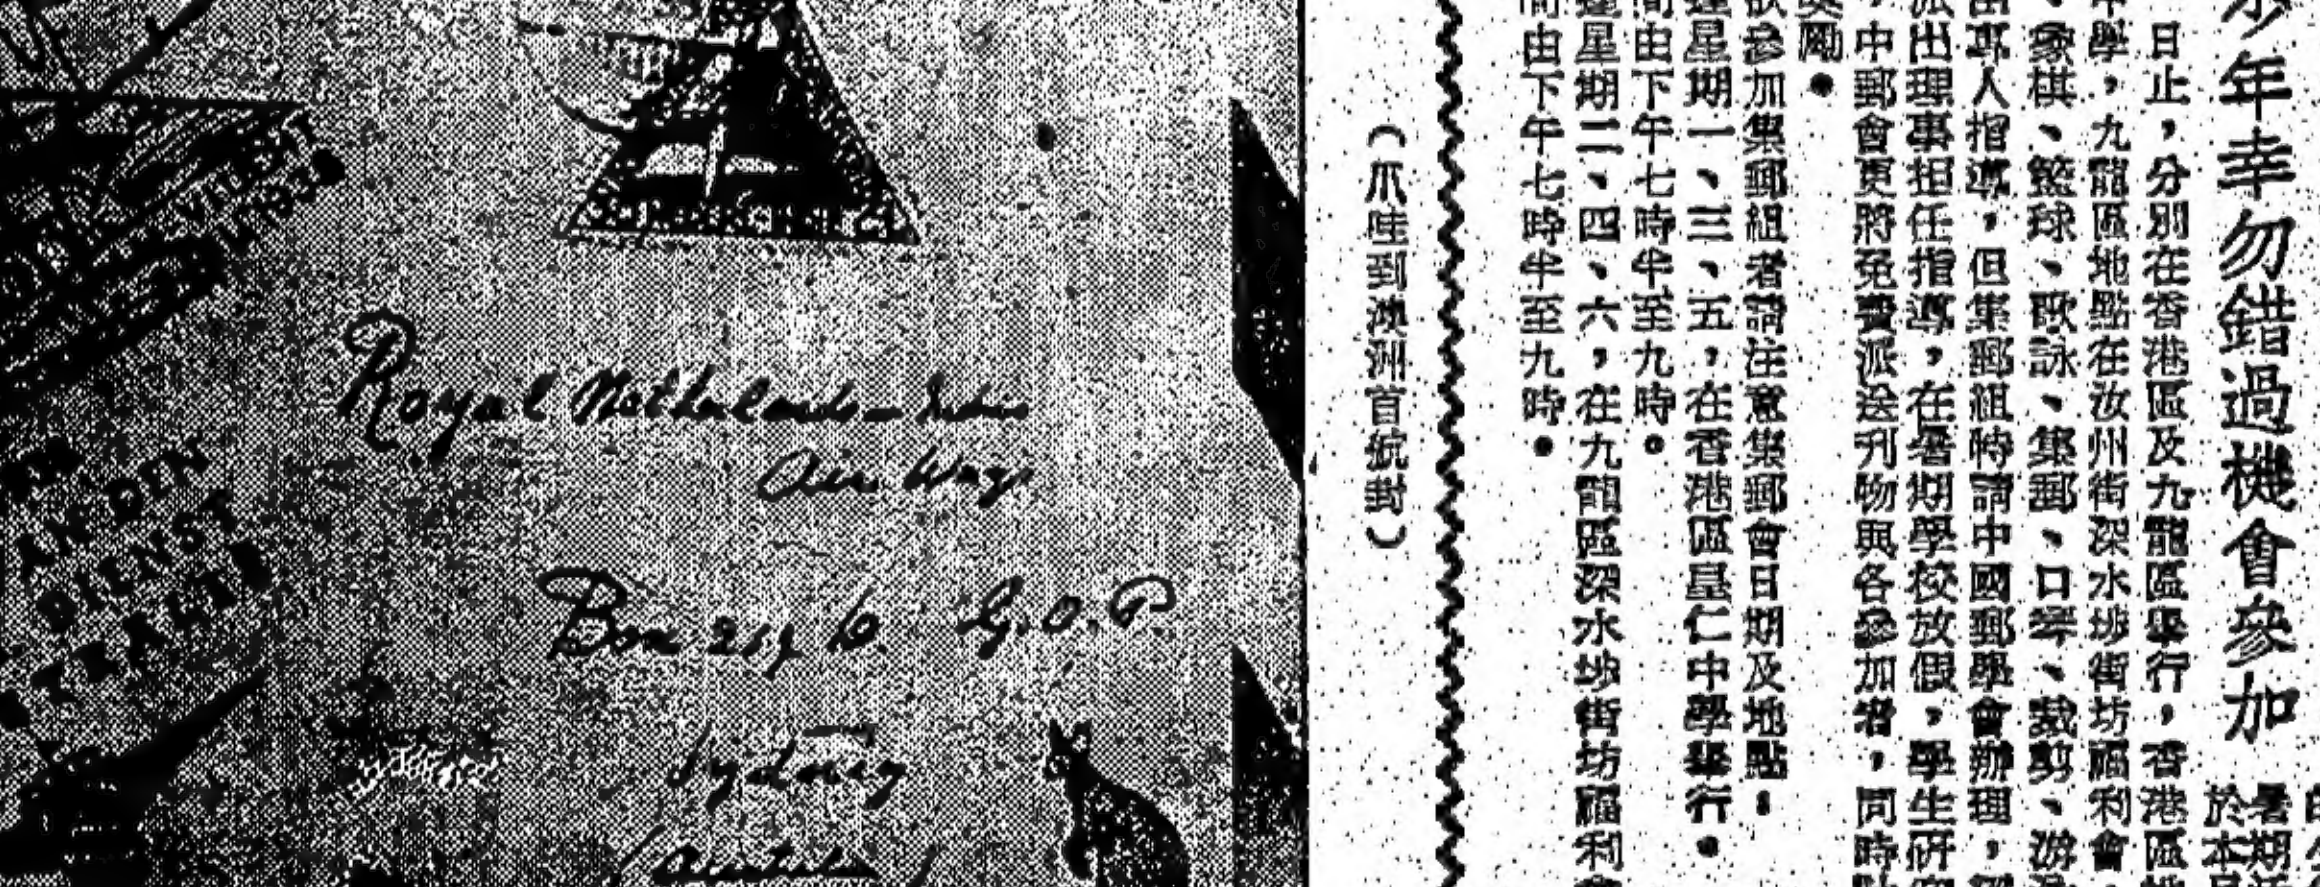 少年幸勿錯過機會參加
暑期
於本
日止，分別在香港區及九龍區舉行，香港區
學，九龍區地點在汝州街深水埗街坊福利會
、象棋、籃球、歌詠、集郵、口琴、裁剪、游
專人指導，但集郵組時請中國郵學會辦理，
派出理事担任指導，在暑期學校放假，學生研
，中郵會更將免費派送刋物與各參加者，同時
勵。
欲參加集郵組者請注意集郵會日期及地點。
逢星期一、三、五，在香港區星仁中學舉行。
間由下午七時半至九時。
逢星期二、四、六，在九龍區深水埗街坊福利
間由下午七時半至九時。
（爪哇到澳洲首航封）
VLUCHT
AN DEN
DIENST
Royal Netherlands-Indies
Air Ways
Box G.O.P.
Sydney
Australia